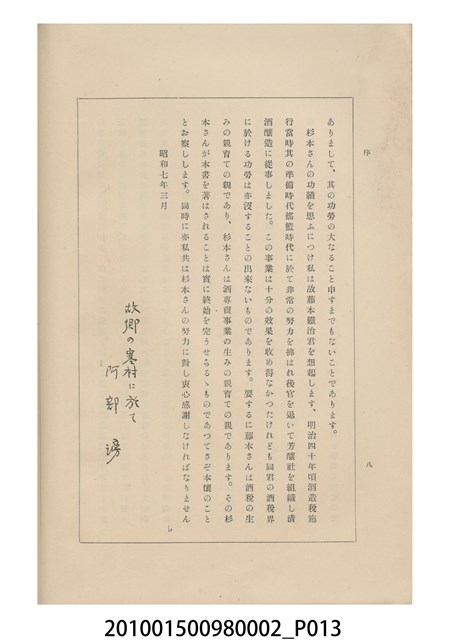 序
八
ありまして、其の功勞の大なること申すまでもないことであります。
杉本さんの功績を思ふにつけ私は故藤本鐵治君を想起します、明治四十年頃酒造税施
行當時其の準備時代搖籃時代に於て非常の努力を拂はれ後官を退いて芳釀社を組織し清
酒釀造に從事しました。この事業は十分の效果を收め得なかつたけれども同君の酒税界
に於ける功勞は亦沒することの出來ないものであります。要するに藤本さんは酒税の生
みの親育ての親であり、杉本さんは酒專賣事業の生みの親育ての親であります。その杉
本さんが本書を著はされることは實に終始を完うせらるゝものであつてさぞ本懷のこと
とお察しします。同時に亦私共は杉本さんの努力に對し衷心感謝しなければなりません
昭和七年三月
故鄉の寒村に於て
阿部滂
201001500980002_P013